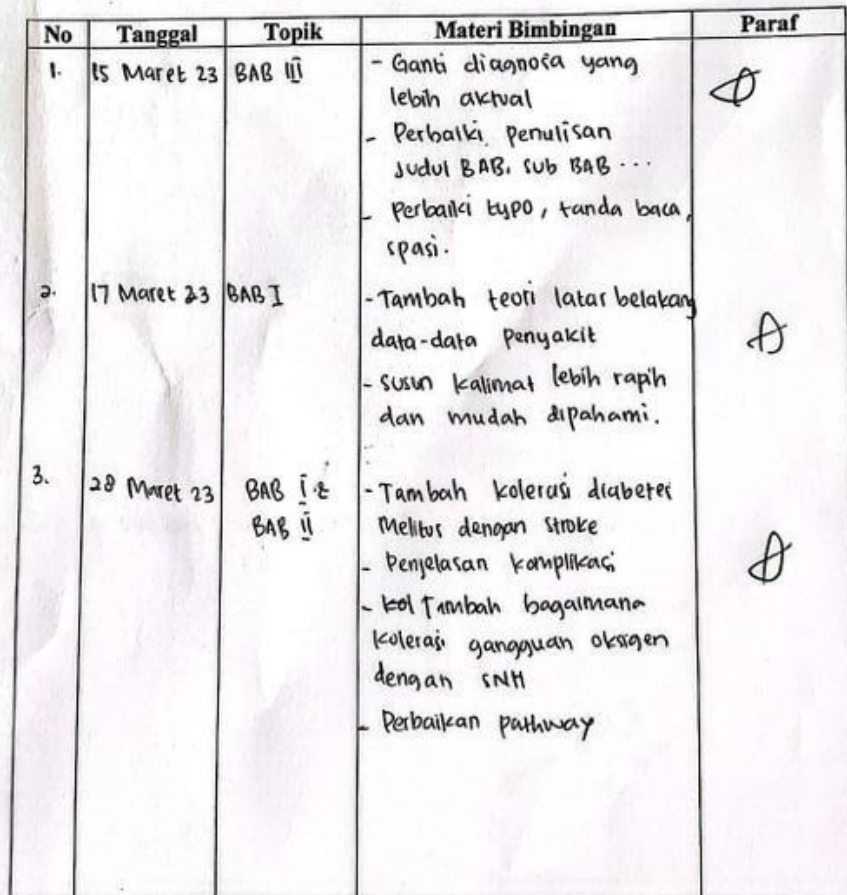 No Tanggal Topik Materi Bimbingan Paraf
1. 15 Maret 23 BAB III - Ganti diagnosa yang
lebih aktual
- Perbaiki penulisan
Judul BAB. Sub BAB ...
- Perbaiki typo, tanda baca,
spasi.
2. 17 Maret 23 BAB I - Tambah teori latar belakang
data-data Penyakit
- Susun kalimat lebih rapih
dan mudah dipahami.
3. 28 Maret 23 BAB I & - Tambah kolerasi diabetes
BAB II Melitus dengan stroke
- Penjelasan komplikasi
- kol Tambah bagaimana
kolerasi gangguan oksigen
dengan SNH
- Perbaikan pathway